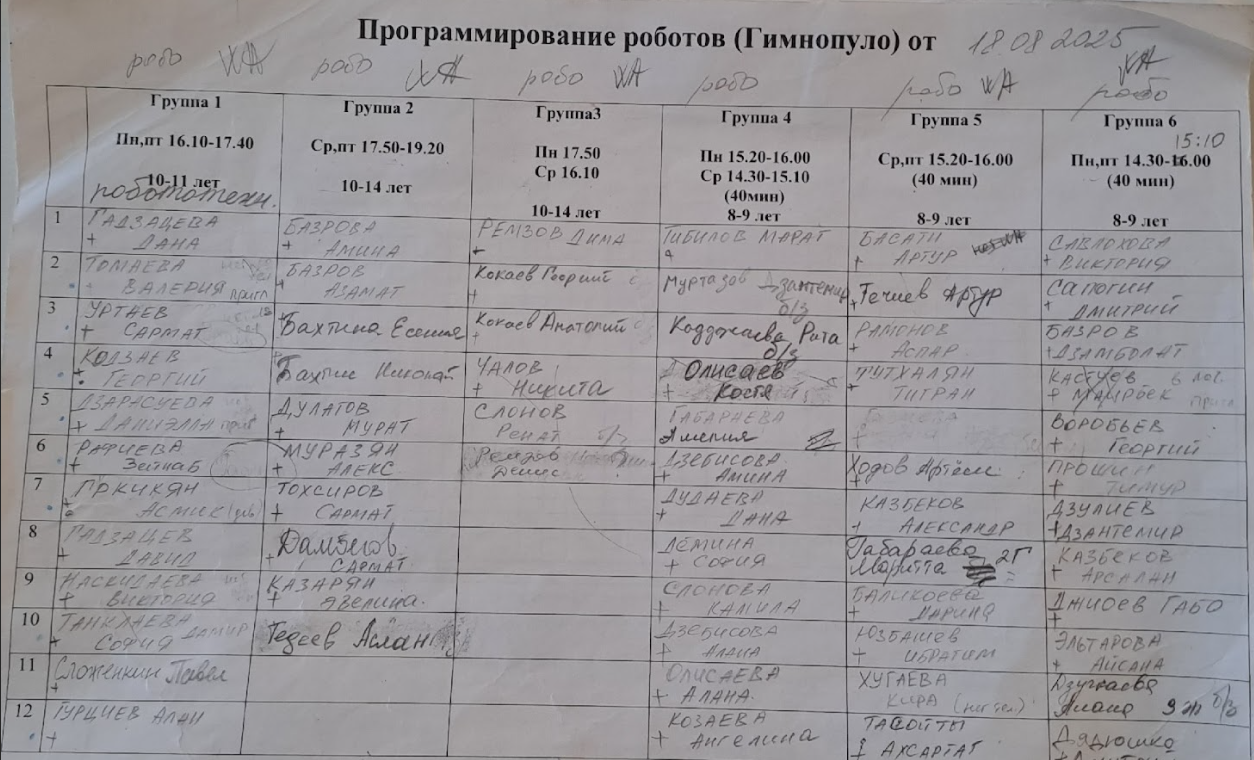 Программирование роботов (Гимнопуло) от 18.08.2025
робо ХА робо ХА робо ХА робо робо ХА ХА робо
Группа 1 Группа 2 Группа3 Группа 4 Группа 5 Группа 6
Пн,пт 16.10-17.40 Ср,пт 17.50-19.20 Пн 17.50 Ср 16.10 Пн 15.20-16.00 Ср 14.30-15.10 (40мин) Ср,пт 15.20-16.00 (40 мин) Пн,пт 14.30-16.00 15:10 (40 мин)
10-11 лет 10-14 лет 10-14 лет 8-9 лет 8-9 лет 8-9 лет
робототехн.
1 ГАДЗАЦЕВА + ДАНА БАЗРОВА + АМИНА РЕМЗОВ ДИМА + ТИБИЛОВ МАРАТ + БАСАТИ + АРТУР САВЛОХОВА + ВИКТОРИЯ
2 ТОМАЕВА ВАЛЕРИЯ БАЗРОВ + АЗАМАТ Кокаев Георгий + Муртазов Дзантемир б/з Течиев Артур + САПОГИН + ДМИТРИЙ
3 УРТАЕВ + САРМАТ Бахтина Есения Кокаев Анатолий + Коджаева Рита б/з РАМОНОВ + АСЛАР БАЗРОВ + ДЗАМБОЛАТ
4 КОДЗАЕВ + ГЕОРГИЙ Бахтин Николай ЧАЛОВ + Никита Олисаев + Костя ТУТХАЛЯН + ТИГРАН КАСТУЕВ + МАИРБЕК
5 ДЗАРАСУЕВА + ДАНИЭЛЛА ДУЛАТОВ + МУРАТ СЛОНОВ Ренат б/з ГАБАРАЕВА Амелия + ВОРОБЬЕВ + Георгий
6 РАФИЕВА + Зейнаб МУРАЗЯН + АЛЕКС Ремзов Денис ДЗЕБИСОВА + АМИНА Ходов Артём + ПРОШИН + ТИМУР
7 ГРКИКЯН + АСМИК (дев) ТОХСИРОВ + САРМАТ ДУДАЕВА + ДАНА КАЗБЕКОВ + АЛЕКСАНДР ДЗУЛИЕВ + ДЗАНТЕМИР
8 ГАДЗАЦЕВ + ДАВИД Дамбегов + САРМАТ ДЁМИНА + СОФИЯ Габараева Маритта 2Г КАЗБЕКОВ + АРСАЛАН
9 НАСКИДАЕВА + ВИКТОРИЯ КАЗАРЯН + ЭВЕЛИНА. СЛОНОВА + КАМИЛА БАЛИКОЕВА + ДАРИНА ДЖИОЕВ ГАБО +
10 ТАНКЛАЕВА + СОФИЯ ДАМИР Тедеев Аслан ДЗЕБИСОВА + АЛАНА ЮЗБАШЕВ + ИБРАГИМ ЭЛЬТАРОВА + АЙСАНА
11 Сложенкин Павел + ОЛИСАЕВА + АЛАНА. ХУГАЕВА КИРА (нет тел.) Дзугкаева Алана 9 б/з
12 ГУРЦИЕВ АЛАН + КОЗАЕВА + Ангелина ТАСОЙТЫ + АХСАРТАГ Дядюшко